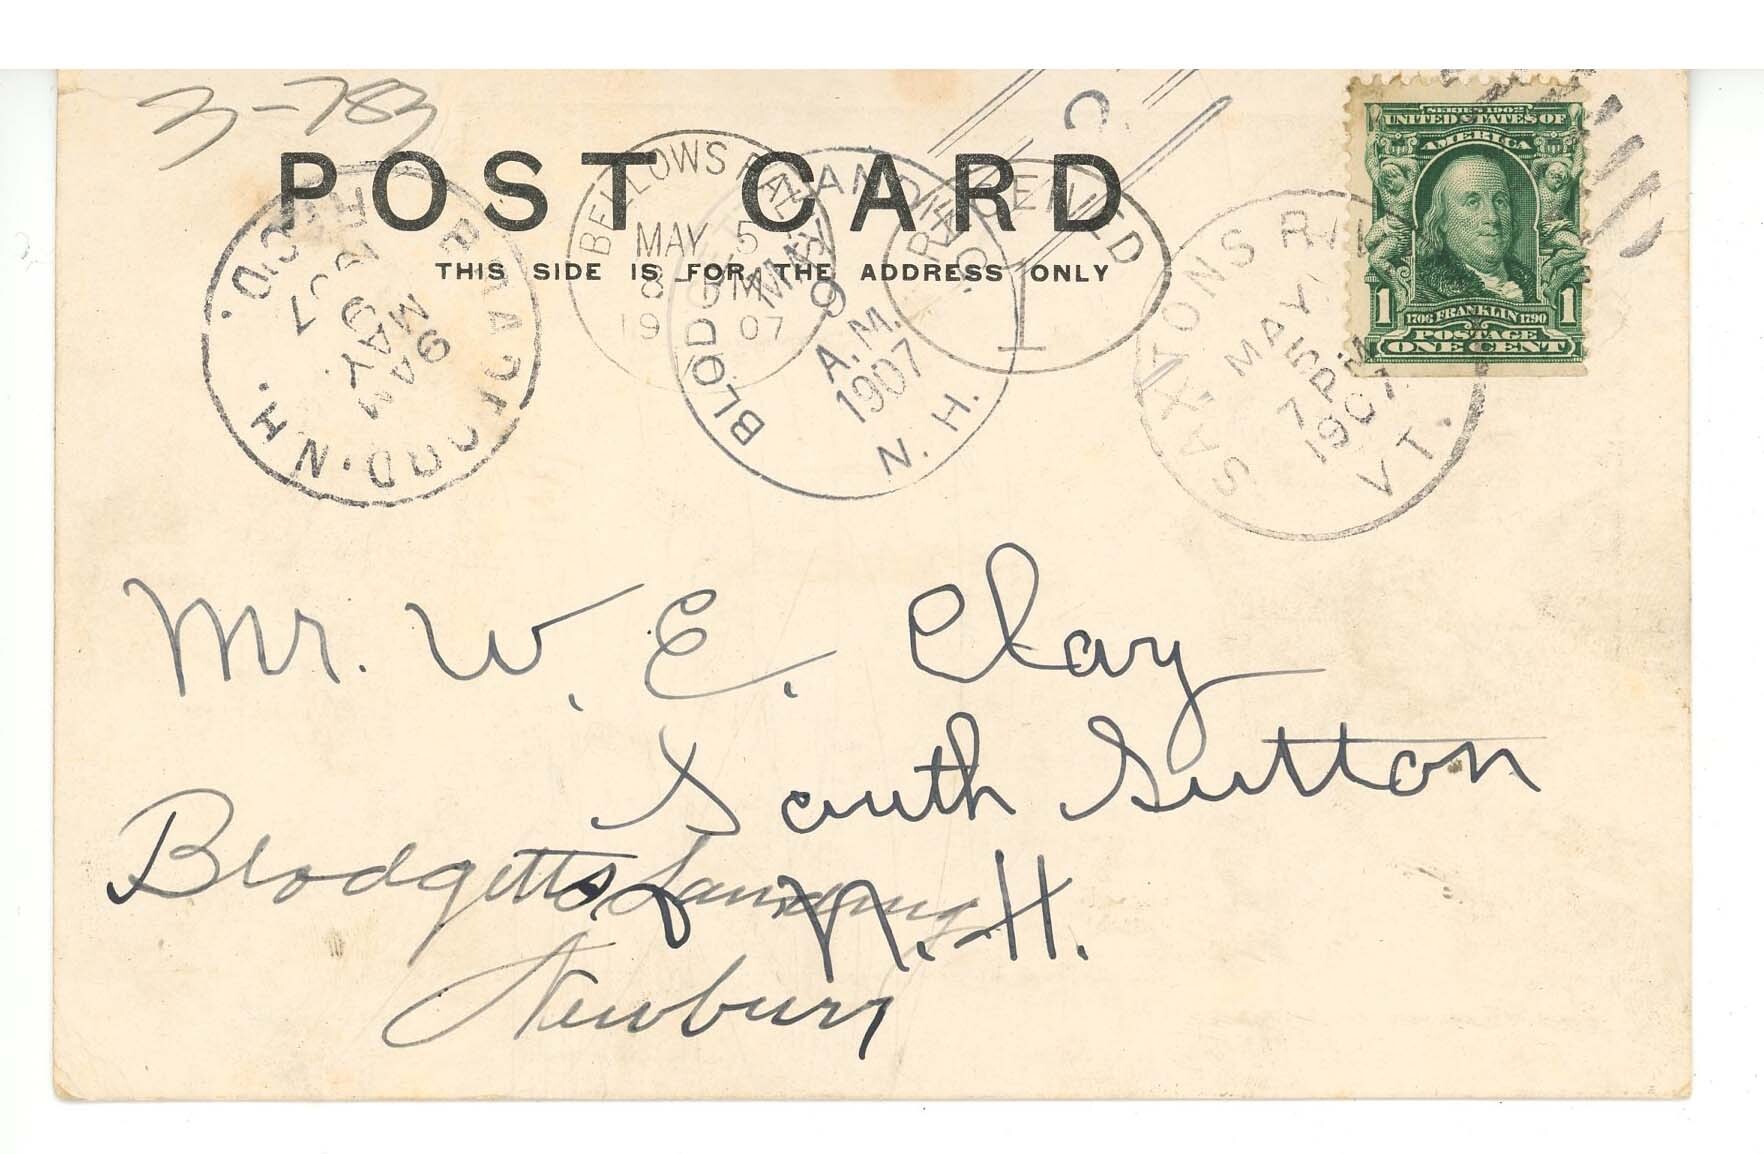 3-783
POST CARD
THIS SIDE IS FOR THE ADDRESS ONLY
SERIES 1902
UNITED STATES OF
AMERICA
1 1
1706 FRANKLIN 1790
POSTAGE
ONE CENT
BRADFORD. N.H.
REC'D.
MAY
9
9 AM
07
BELLOWS FALLS
MAY 5
8 PM
19 07
BLODGETT LANDING
MAY
9
A.M.
1907
N. H.
RECEIVED
1
C
SAXTONS RIVER
MAY
5
7 PM
1907
VT.
Mr. W. E. Clay
South Sutton
N. H.
Blodgetts Landing
Newbury